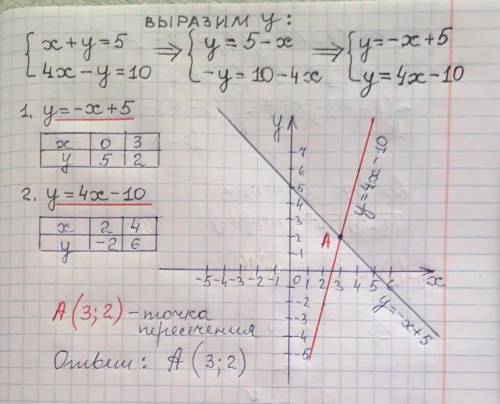 ВЫРАЗИМ y:
{x+y=5 ⇒ {y=5-x ⇒ {y=-x+5
{4x-y=10 {-y=10-4x {y=4x-10
1. y=-x+5
x 0 3
y 5 2
2. y=4x-10
x 2 4
y -2 6
A(3;2) - точка
пересечения
Ответ: A (3;2)
y
7
6
5
4
3
2
1
-5 -4 -3 -2 -1 0 1 2 3 4 5 6 7 x
-1
-2
-3
-4
-5
A
y=4x-10
y=-x+5